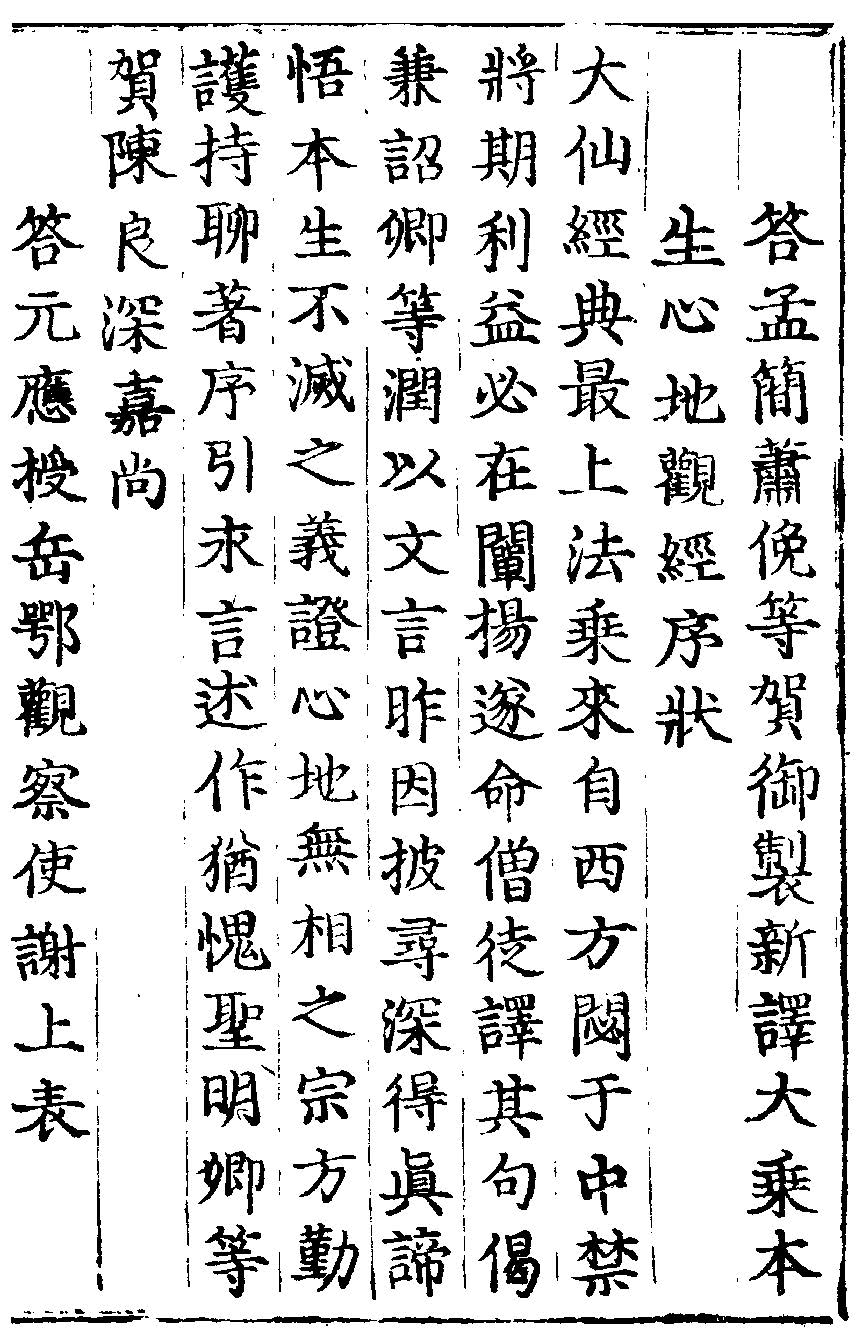 答孟簡蕭俛等賀御製新譯大乘本
生心地觀經序狀
大仙經典最上法乘來自西方閟于中禁
將期利益必在闡揚遂命僧徒譯其句偈
兼詔卿等潤以文言昨因披尋深得眞諦
悟本生不滅之義證心地無相之宗方勤
護持聊著序引永言述作猶愧聖明卿等
賀陳良深嘉尚
答元應授岳鄂觀察使謝上表